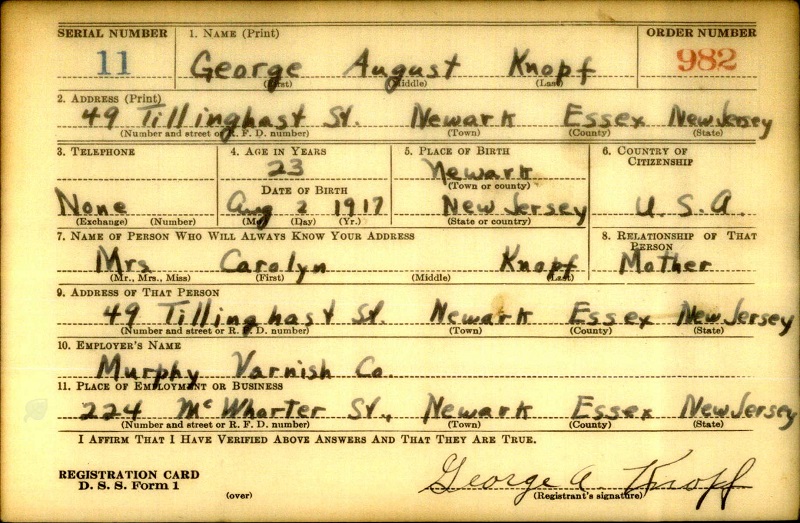 SERIAL NUMBER 1. NAME (Print) ORDER NUMBER
11 George August Knopf 982
(First) (Middle) (Last)
2. ADDRESS (Print)
49 Tillinghast St. Newark Essex New Jersey
(Number and street or R. F. D. number) (Town) (County) (State)
3. TELEPHONE 4. AGE IN YEARS 5. PLACE OF BIRTH 6. COUNTRY OF CITIZENSHIP
23 Newark
(Town or county)
DATE OF BIRTH
None Aug 2 1917 New Jersey U. S. A.
(Exchange) (Number) (Mo.) (Day) (Yr.) (State or country)
7. NAME OF PERSON WHO WILL ALWAYS KNOW YOUR ADDRESS 8. RELATIONSHIP OF THAT PERSON
Mrs Carolyn Knopf Mother
(Mr., Mrs., Miss) (First) (Middle) (Last)
9. ADDRESS OF THAT PERSON
49 Tillinghast St. Newark Essex New Jersey
(Number and street or R. F. D. number) (Town) (County) (State)
10. EMPLOYER'S NAME
Murphy Varnish Co.
11. PLACE OF EMPLOYMENT OR BUSINESS
224 McWhorter St., Newark Essex New Jersey
(Number and street or R. F. D. number) (Town) (County) (State)
I AFFIRM THAT I HAVE VERIFIED ABOVE ANSWERS AND THAT THEY ARE TRUE.
REGISTRATION CARD
D. S. S. Form 1 George A. Knopf
(over) (Registrant's signature)